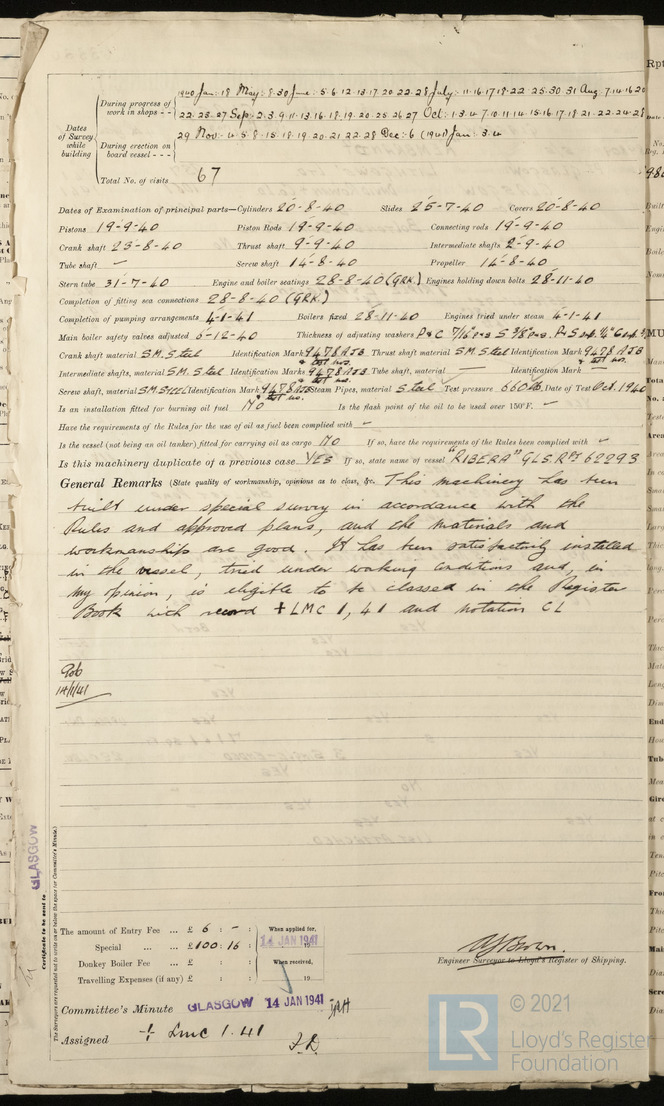 During progress of work in shops - - 1940 Jan: 18 May: 8.30 June: 5.6.12.13.17.20.22.28 July: 11.16.17.18.22.25.30.31 Aug 7.14.16.20
22.23.27 Sep: 2.3.9.11.13.16.18.19.20.25.26.27 Oct: 1.3.4.7.10.11.14.15.16.17.18.21.22.24.28
Dates of Survey while building
During erection on board vessel - - - 29 Nov: 4.5.8.15.18.19.20.21.22.28 Dec: 6 (1941) Jan: 3.4
Total No. of visits 67
Dates of Examination of principal parts—Cylinders 20-8-40 Slides 25-7-40 Covers 20-8-40
Pistons 19-9-40 Piston Rods 19-9-40 Connecting rods 19-9-40
Crank shaft 23-8-40 Thrust shaft 9-9-40 Intermediate shafts 2-9-40
Tube shaft — Screw shaft 14-8-40 Propeller 14-8-40
Stern tube 31-7-40 Engine and boiler seatings 28-8-40 (GRK.) Engines holding down bolts 28-11-40
Completion of fitting sea connections 28-8-40 (GRK.)
Completion of pumping arrangements 4-1-41 Boilers fixed 28-11-40 Engines tried under steam 4-1-41
Main boiler safety valves adjusted 5-12-40 Thickness of adjusting washers P & C 7/16"
Crank shaft material S.M. Steel Identification Mark 9478 AJB Thrust shaft material S.M. Steel Identification Mark 9478 AJB
& tst nos. & tst nos.
Intermediate shafts, material S.M. Steel Identification Marks 9478 AJB Tube shaft, material — Identification Mark —
& tst nos.
Screw shaft, material S.M. STEEL Identification Mark 9478 AJB Steam Pipes, material Steel Test pressure 660 lb Date of Test Oct. 1940
& tst no.
Is an installation fitted for burning oil fuel NO Is the flash point of the oil to be used over 150°F. —
Have the requirements of the Rules for the use of oil as fuel been complied with —
Is the vessel (not being an oil tanker) fitted for carrying oil as cargo NO If so, have the requirements of the Rules been complied with —
Is this machinery duplicate of a previous case YES If so, state name of vessel "RIBERA" GLS. Rpt 62293
General Remarks (State quality of workmanship, opinions as to class, &c. This machinery has been
built under special survey in accordance with the
Rules and approved plans, and the materials and
workmanship are good. It has been satisfactorily installed
in the vessel, tried under working conditions and, in
my opinion, is eligible to be classed in the Register
Book with record + LMC 1,41 and notation CL
14/1/41
GLASGOW
Certificate to be sent to
(The Surveyors are requested not to write on or below the space for Committee's Minute.)
The amount of Entry Fee ... £ 6 : - : When applied for,
Special ... ... £100 : 16 : 14 JAN 1941
Donkey Boiler Fee ... £ : : When received,
Travelling Expenses (if any) £ : : 19
Engineer Surveyor to Lloyd's Register of Shipping.
Committee's Minute GLASGOW 14 JAN 1941
Assigned + LMC 1.41
LR
© 2021
Lloyd's Register
Foundation